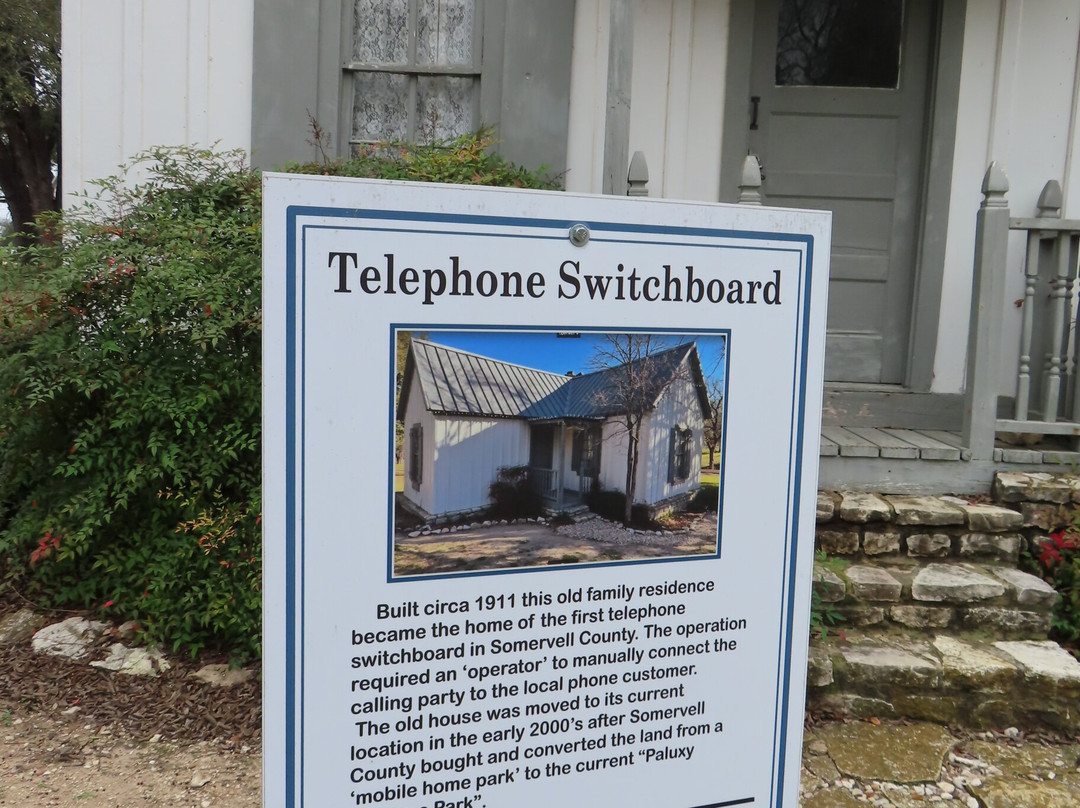 Telephone Switchboard
Built circa 1911 this old family residence
became the home of the first telephone
switchboard in Somervell County. The operation
required an ‘operator’ to manually connect the
calling party to the local phone customer.
The old house was moved to its current
location in the early 2000’s after Somervell
County bought and converted the land from a
‘mobile home park’ to the current “Paluxy
Park”.